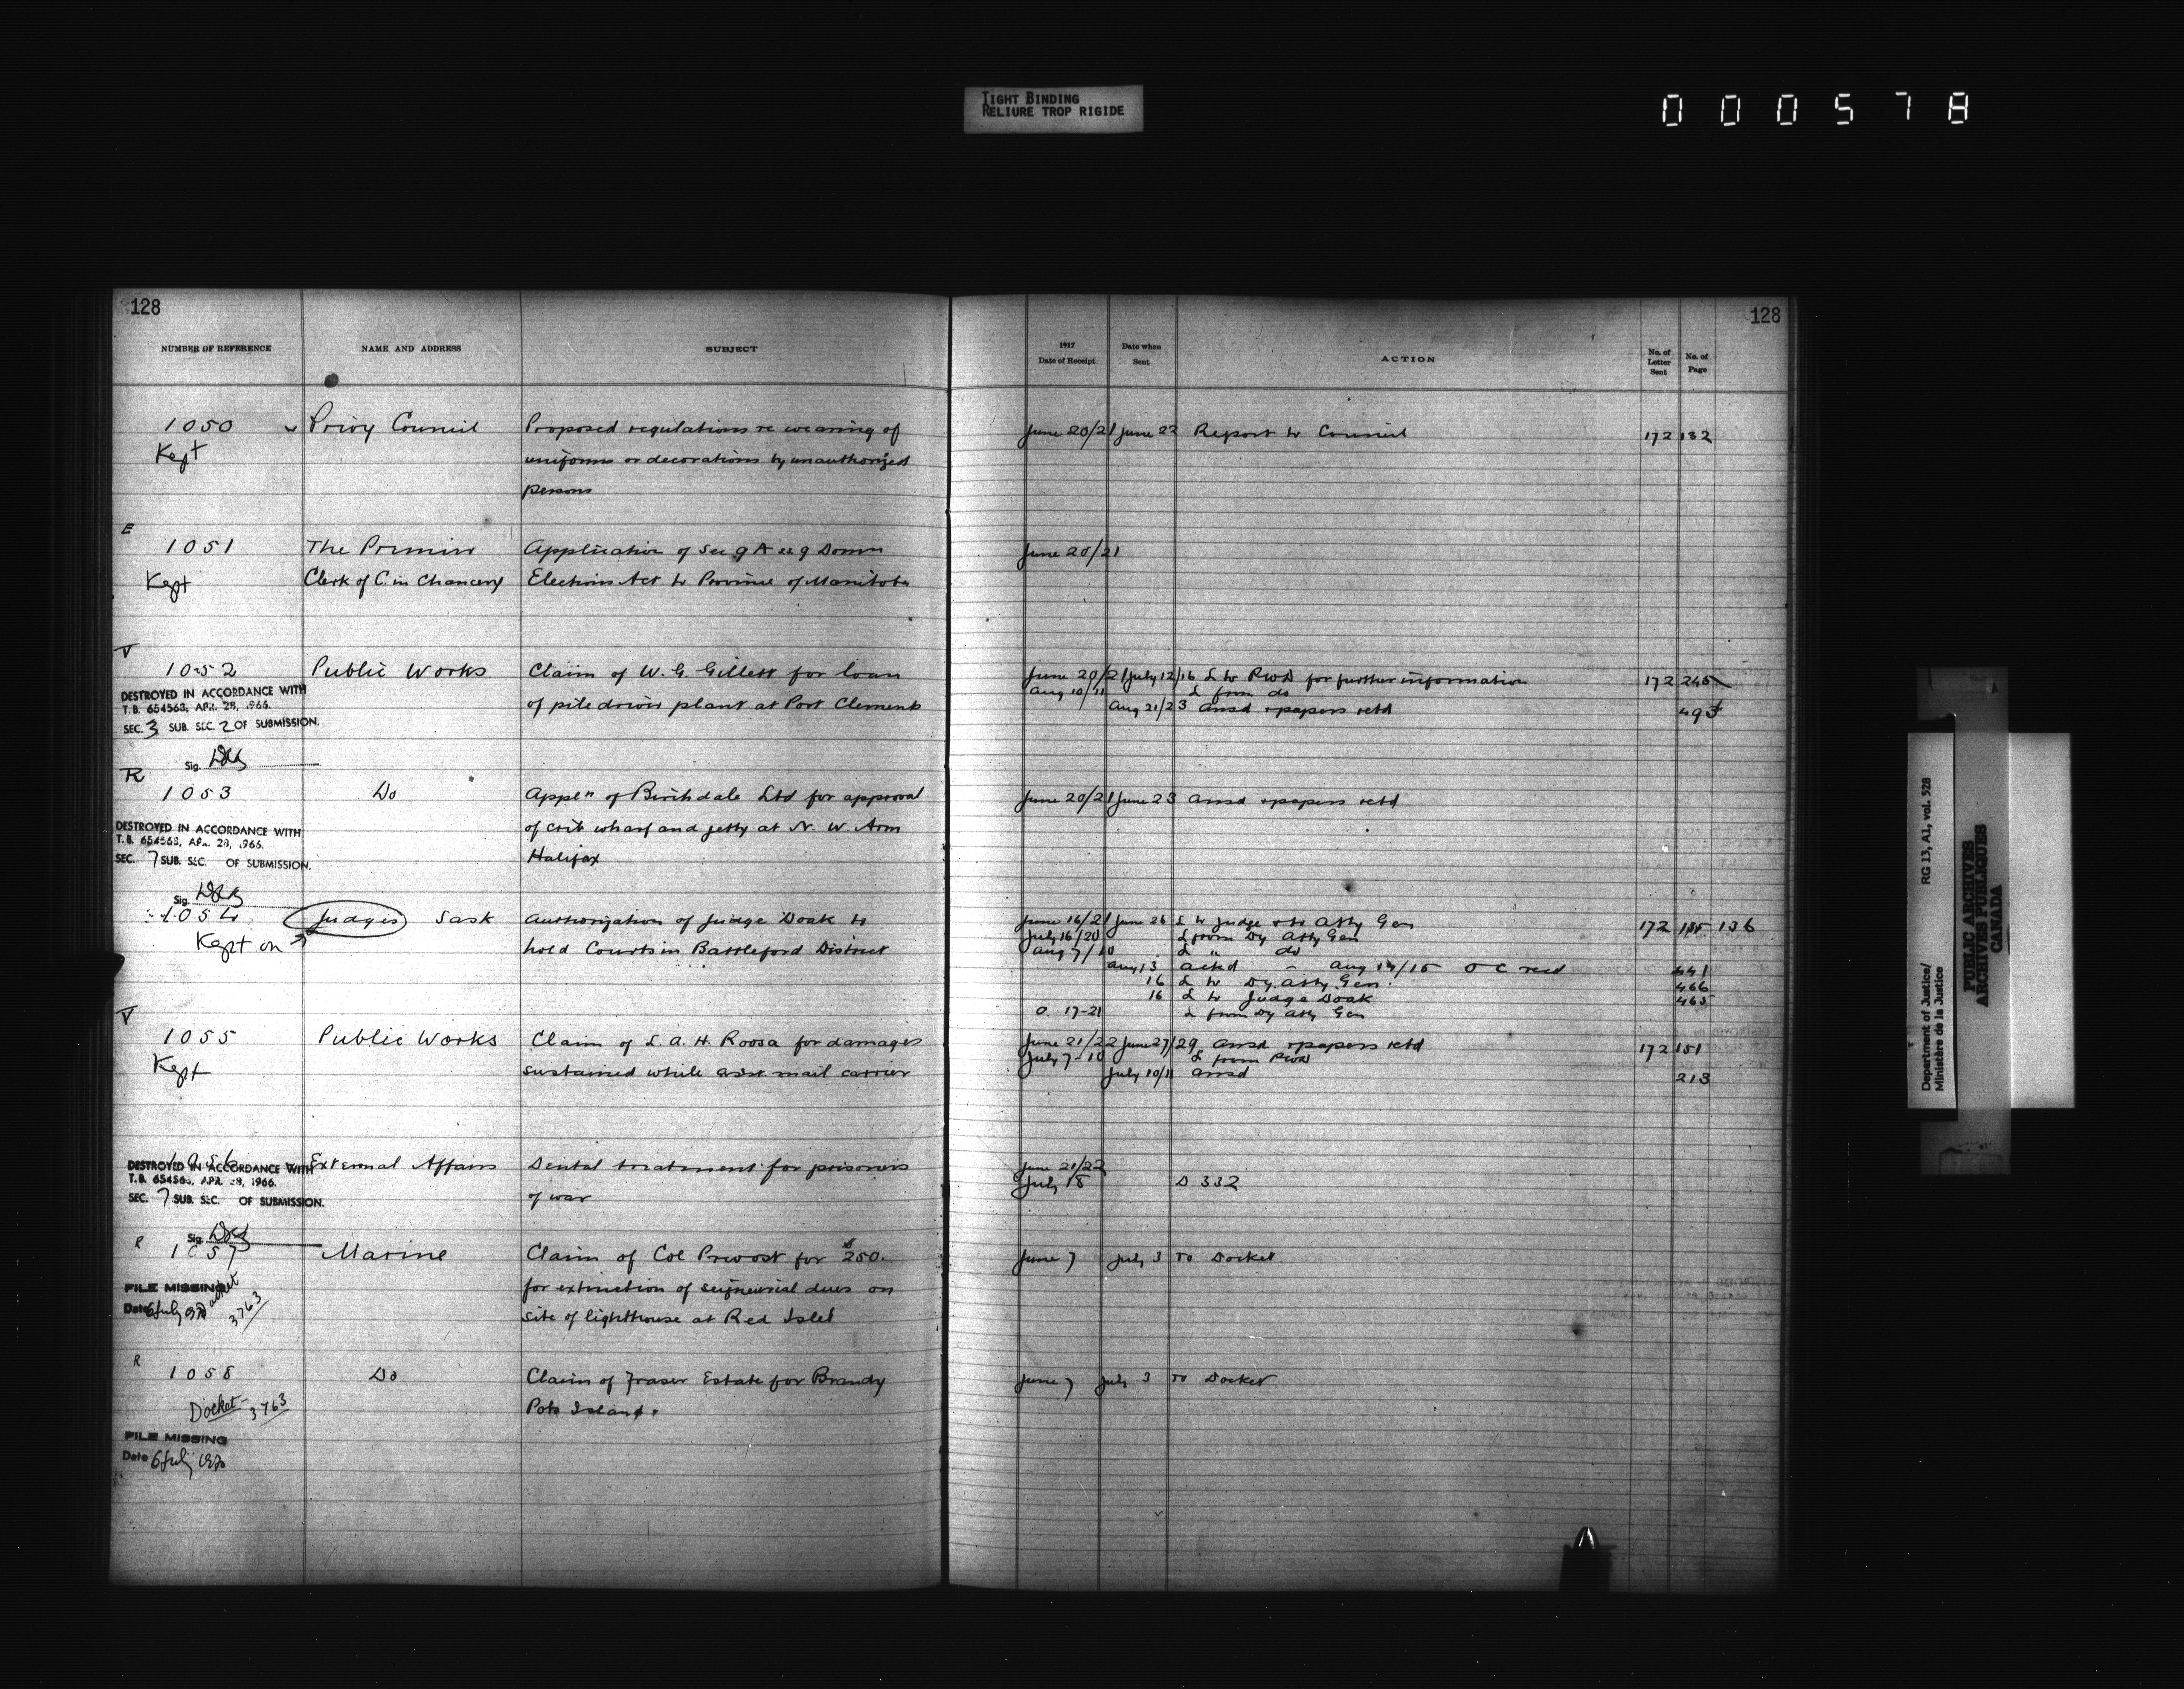 TIGHT BINDING
RELIURE TROP RIGIDE
000578
128
NUMBER OF REFERENCE NAME AND ADDRESS SUBJECT
1050 Privy Council Proposed regulations re wearing of
Kept uniforms or decorations by unauthorized
persons
E
1051 The Premier Application of Sec 9 A Domn
Kept Clerk of C. in Chancery Elections Act to Province of Manitoba
V
1052 Public Works Claim of W. G. Gillett for loan
DESTROYED IN ACCORDANCE WITH
T.B. 654563, APR. 28, 1966.
of pile driver plant at Port Clements
SEC. 3 SUB. SEC. 2 OF SUBMISSION.
Sig.
R
1053 Do Appln of Birchdale Ltd for approval
DESTROYED IN ACCORDANCE WITH
of crib wharf and jetty at N. W. Arm
T.B. 654563, APR. 28, 1966.
SEC. 7 SUB. SEC. OF SUBMISSION.
Halifax
Sig.
1054 Judges Sask Authorization of Judge Doak to
Kept on hold Courts in Battleford District
V
1055 Public Works Claim of L. A. H. Roosa for damages
Kept sustained while asst. mail carrier
1056 External Affairs Dental treatment for prisoners
DESTROYED IN ACCORDANCE WITH
T.B. 654563, APR. 28, 1966.
SEC. 7 SUB. SEC. OF SUBMISSION.
of war
Sig.
R
1057 Marine Claim of Col Prevost for $250.
FILE MISSING
for extinction of seigneurial dues on
Date 6 July 1970 Docket 3763
site of lighthouse at Red Islet
R
1058 Do Claim of Fraser Estate for Brandy
Docket - 3763 Pots Island.
FILE MISSING
Date 6 July 1970
128
1917
Date of Receipt Date when Sent ACTION No. of Letter Sent No. of Page
June 20/21 June 22 Report to Council 172 132
June 20/21
June 20/21 July 12/16 L to PWD for further information 172 245
Aug 10/11 L from do
Aug 21/23 ansd & papers retd 493
June 20/21 June 23 ansd & papers retd
June 16/21 June 26 L to Judge & to Atty Gen 172 135 136
July 16/20 L from Dy Atty Gen
Aug 7/10 L " do
Aug 13 ackd - Aug 14/15 O C recd 441
16 L to Dy. Atty. Gen. 466
16 L to Judge Doak 465
O. 17-21 L from Dy Atty Gen
June 21/22 June 27/29 ansd & papers retd 172 151
July 7-10 L from PWD
July 10/11 ansd 213
June 21/22
July 18 D 332
June 7 July 3 To Docket
June 7 July 3 To Docket
Department of Justice/ RG 13, A1, vol. 528
Ministère de la Justice
PUBLIC ARCHIVES
ARCHIVES PUBLIQUES
CANADA